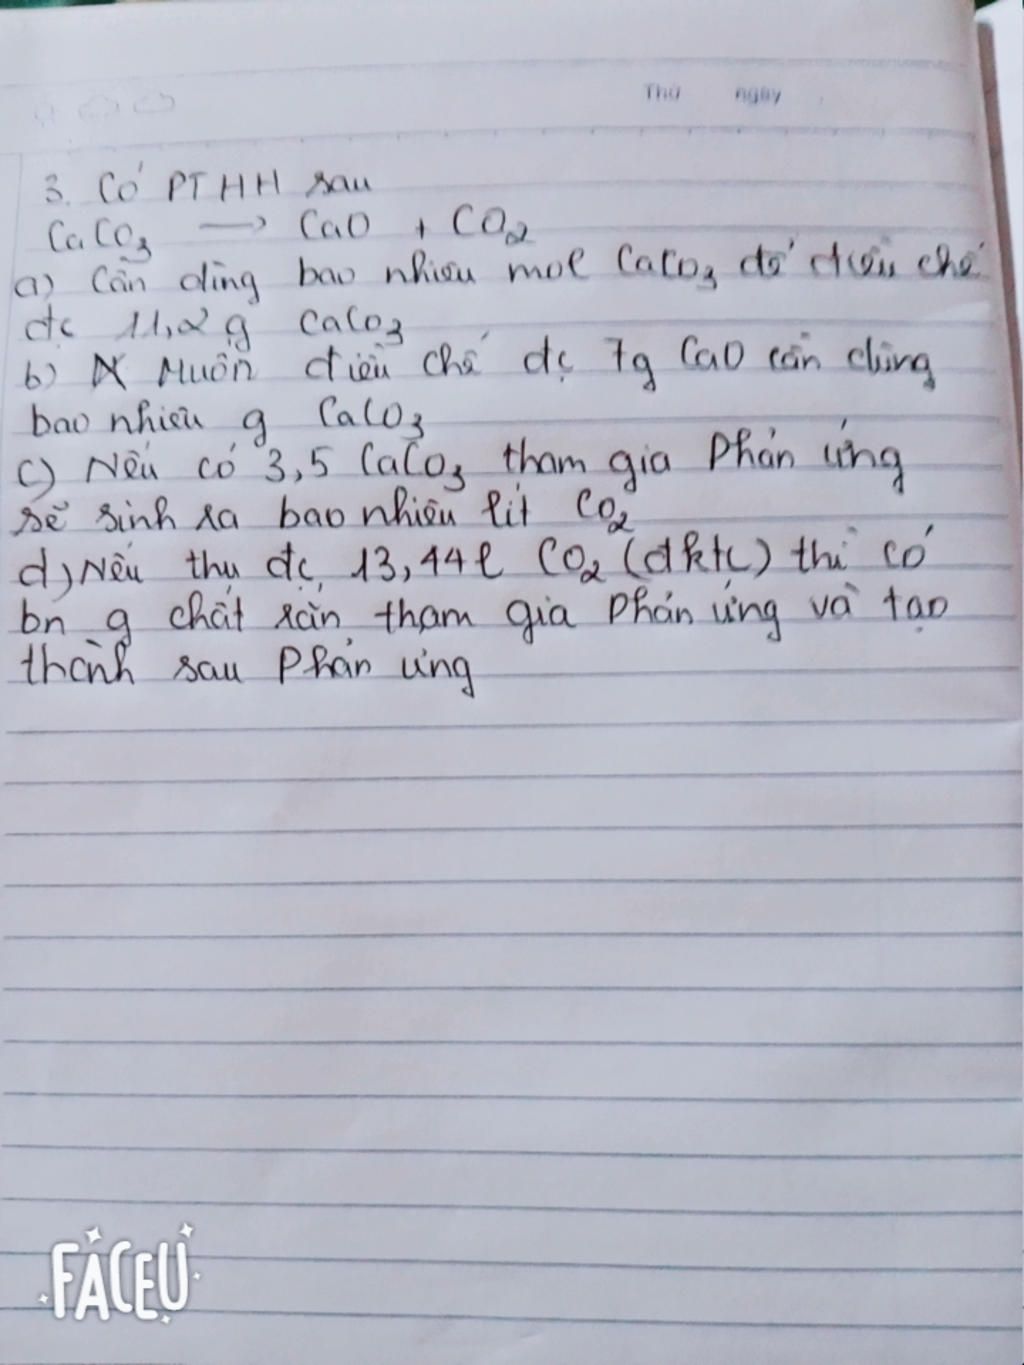 Thứ ngày
3. Có PTHH sau
CaCO3 → CaO + CO2
a) Cần dùng bao nhiêu mol CaCO3 để điều chế
đc 11,2 g CaCO3
b) Muốn điều chế đc 7g CaO cần dùng
bao nhiêu g CaCO3
c) Nếu có 3,5 CaCO3 tham gia Phản ứng
sẽ sinh ra bao nhiêu lít CO2
d) Nếu thu đc 13,44l CO2 (đktc) thì có
bn g chất rắn tham gia Phản ứng và tạo
thành sau Phản ứng
FACEU